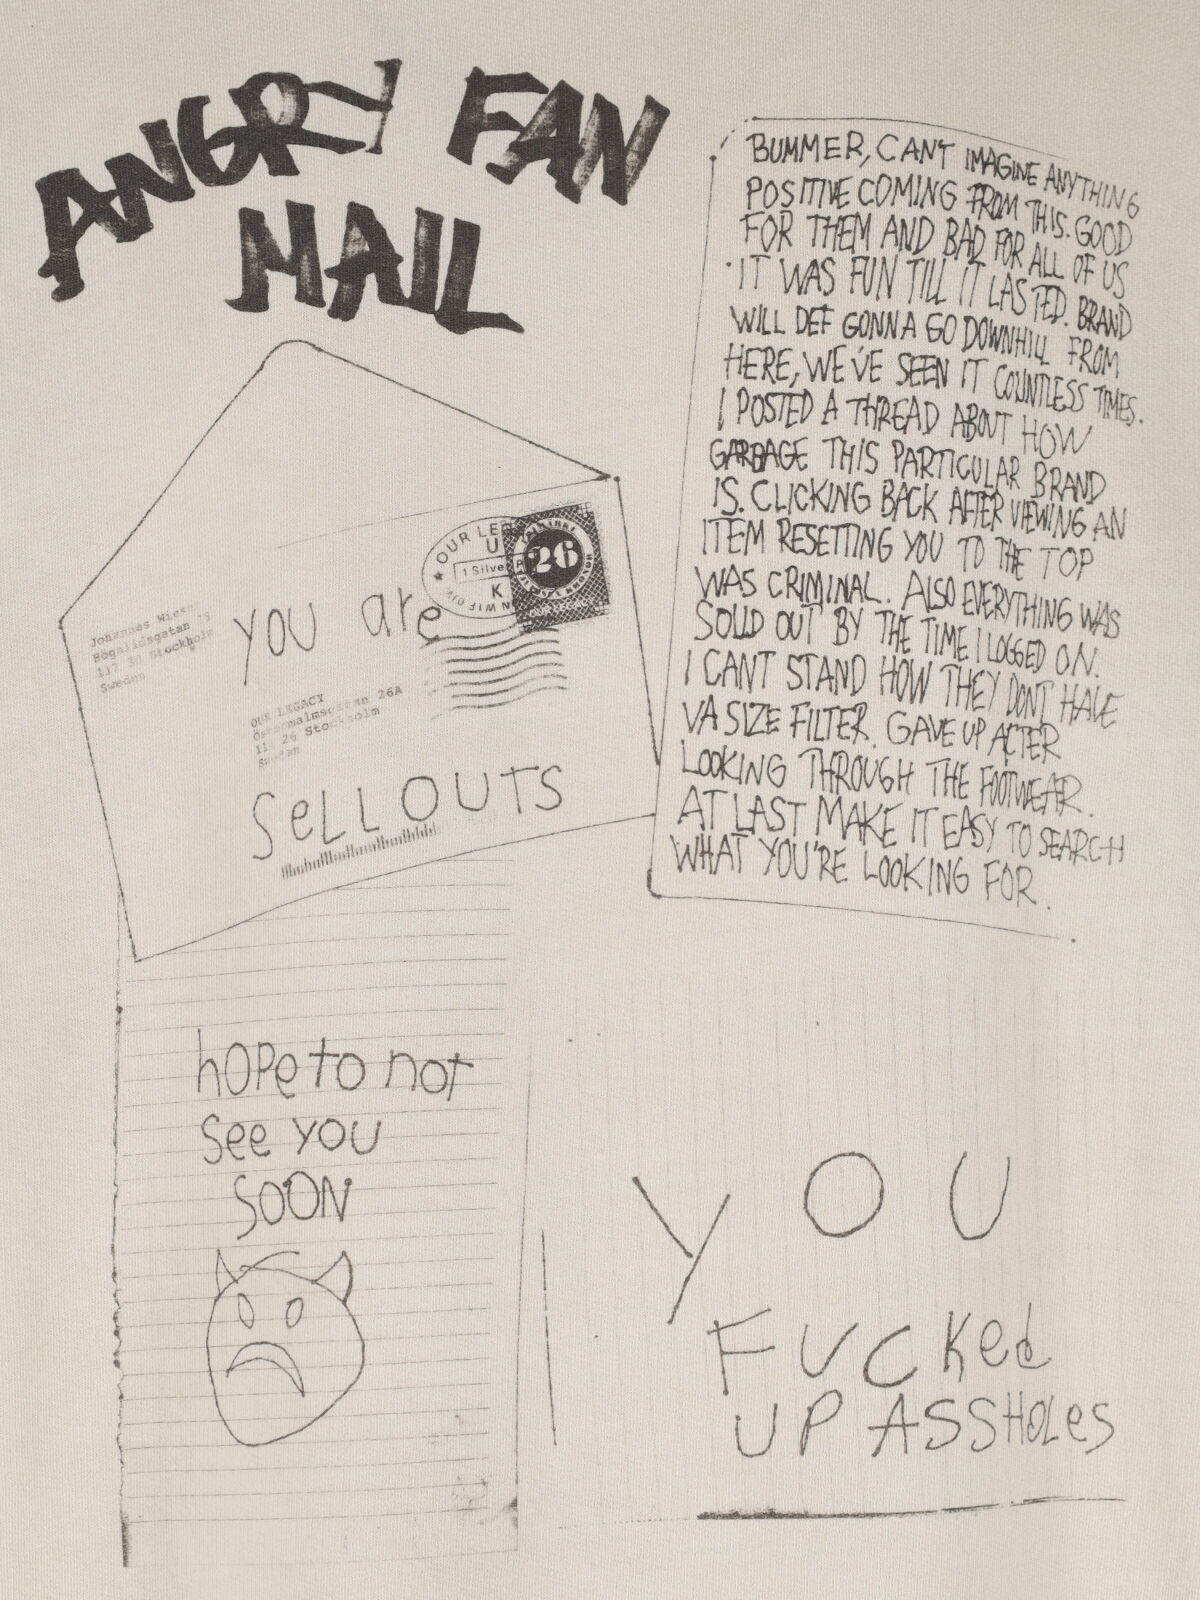 ANGRY FAN
MAIL
BUMMER, CAN'T IMAGINE ANYTHING
POSITIVE COMING FROM THIS. GOOD
FOR THEM AND BAD FOR ALL OF US
IT WAS FUN TILL IT LASTED. BRAND
WILL DEF GONNA GO DOWNHILL FROM
HERE, WE'VE SEEN IT COUNTLESS TIMES.
I POSTED A THREAD ABOUT HOW
GARBAGE THIS PARTICULAR BRAND
IS. CLICKING BACK AFTER VIEWING AN
ITEM RESETTING YOU TO THE TOP
WAS CRIMINAL. ALSO EVERYTHING WAS
SOLD OUT BY THE TIME I LOGGED ON.
I CANT STAND HOW THEY DONT HAVE
VA SIZE FILTER. GAVE UP AFTER
LOOKING THROUGH THE FOOTWEAR.
AT LAST MAKE IT EASY TO SEARCH
WHAT YOU'RE LOOKING FOR.
OUR LE
U
1 Silver
K
26
Johannes Wiese
Högalidsgatan
117 30 Stockholm
Sweden
you are
OUR LEGACY
Östermalmsgatan 26A
114 26 Stockholm
Sweden
SeLLOUTS
hOPe to not
See YOU
SOON
YOU
FUCKed
UP ASSHOLeS